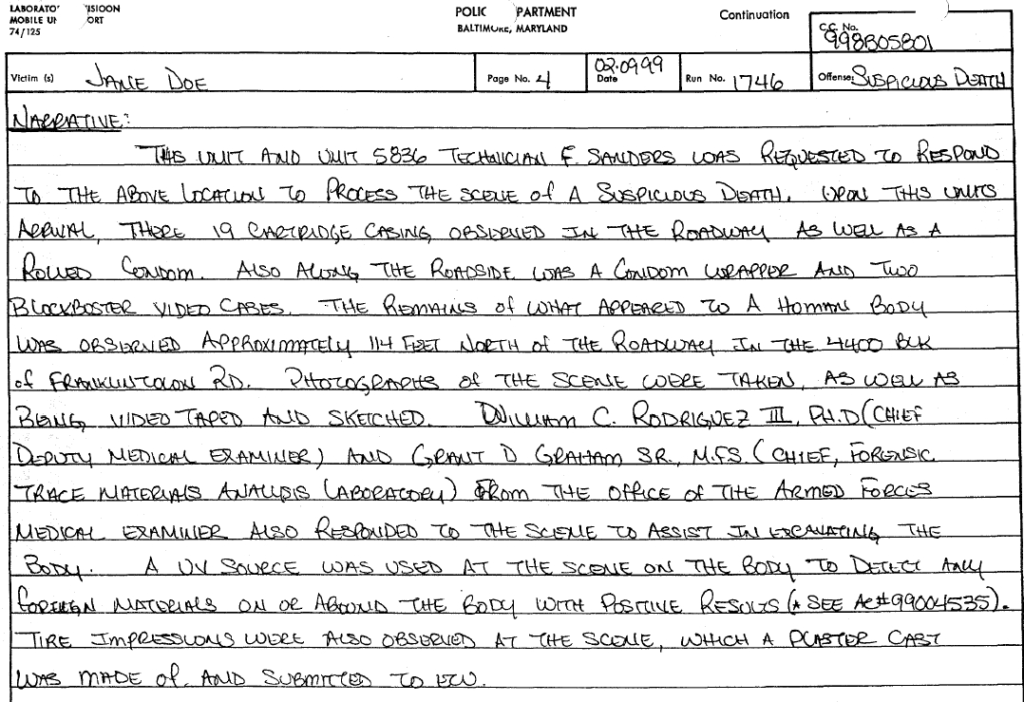 LABORATO ISIOON
MOBILE U ORT
74/125
POLIC PARTMENT
BALTIMORE, MARYLAND
Continuation
C.C. No.
998B05801
Victim (s) JANE DOE
Page No. 4
02.09.99
Date
Run No. 1746
Offense: SUSPICIOUS DEATH
NARRATIVE:
THIS UNIT AND UNIT 5836 TECHNICIAN F. SANDERS WAS REQUESTED TO RESPOND
TO THE ABOVE LOCATION TO PROCESS THE SCENE OF A SUSPICIOUS DEATH. UPON THIS UNITS
ARRIVAL, THERE 19 CARTRIDGE CASING OBSERVED IN THE ROADWAY AS WELL AS A
ROLLED CONDOM. ALSO ALONG THE ROADSIDE WAS A CONDOM WRAPPER AND TWO
BLOCKBOSTER VIDEO CASES. THE REMAINS OF WHAT APPEARED TO A HUMAN BODY
WAS OBSERVED APPROXIMATELY 114 FEET NORTH OF THE ROADWAY IN THE 4400 BLK
OF FRANKLINTOWN RD. PHOTOGRAPHS OF THE SCENE WERE TAKEN, AS WELL AS
BEING VIDEO TAPED AND SKETCHED. WILLIAM C. RODRIGUEZ III, PH.D (CHIEF
DEPUTY MEDICAL EXAMINER) AND GRANT D GRAHAM SR., M.F.S. (CHIEF, FORENSIC
TRACE MATERIALS ANALYSIS LABORATORY) FROM THE OFFICE OF THE ARMED FORCES
MEDICAL EXAMINER ALSO RESPONDED TO THE SCENE TO ASSIST IN EXCAVATING THE
BODY. A UV SOURCE WAS USED AT THE SCENE ON THE BODY TO DETECT ANY
FOREIGN MATERIALS ON OR AROUND THE BODY WITH POSITIVE RESULTS (* SEE AC#99004535).
TIRE IMPRESSIONS WERE ALSO OBSERVED AT THE SCENE, WHICH A PLASTER CAST
WAS MADE OF, AND SUBMITTED TO ECU.